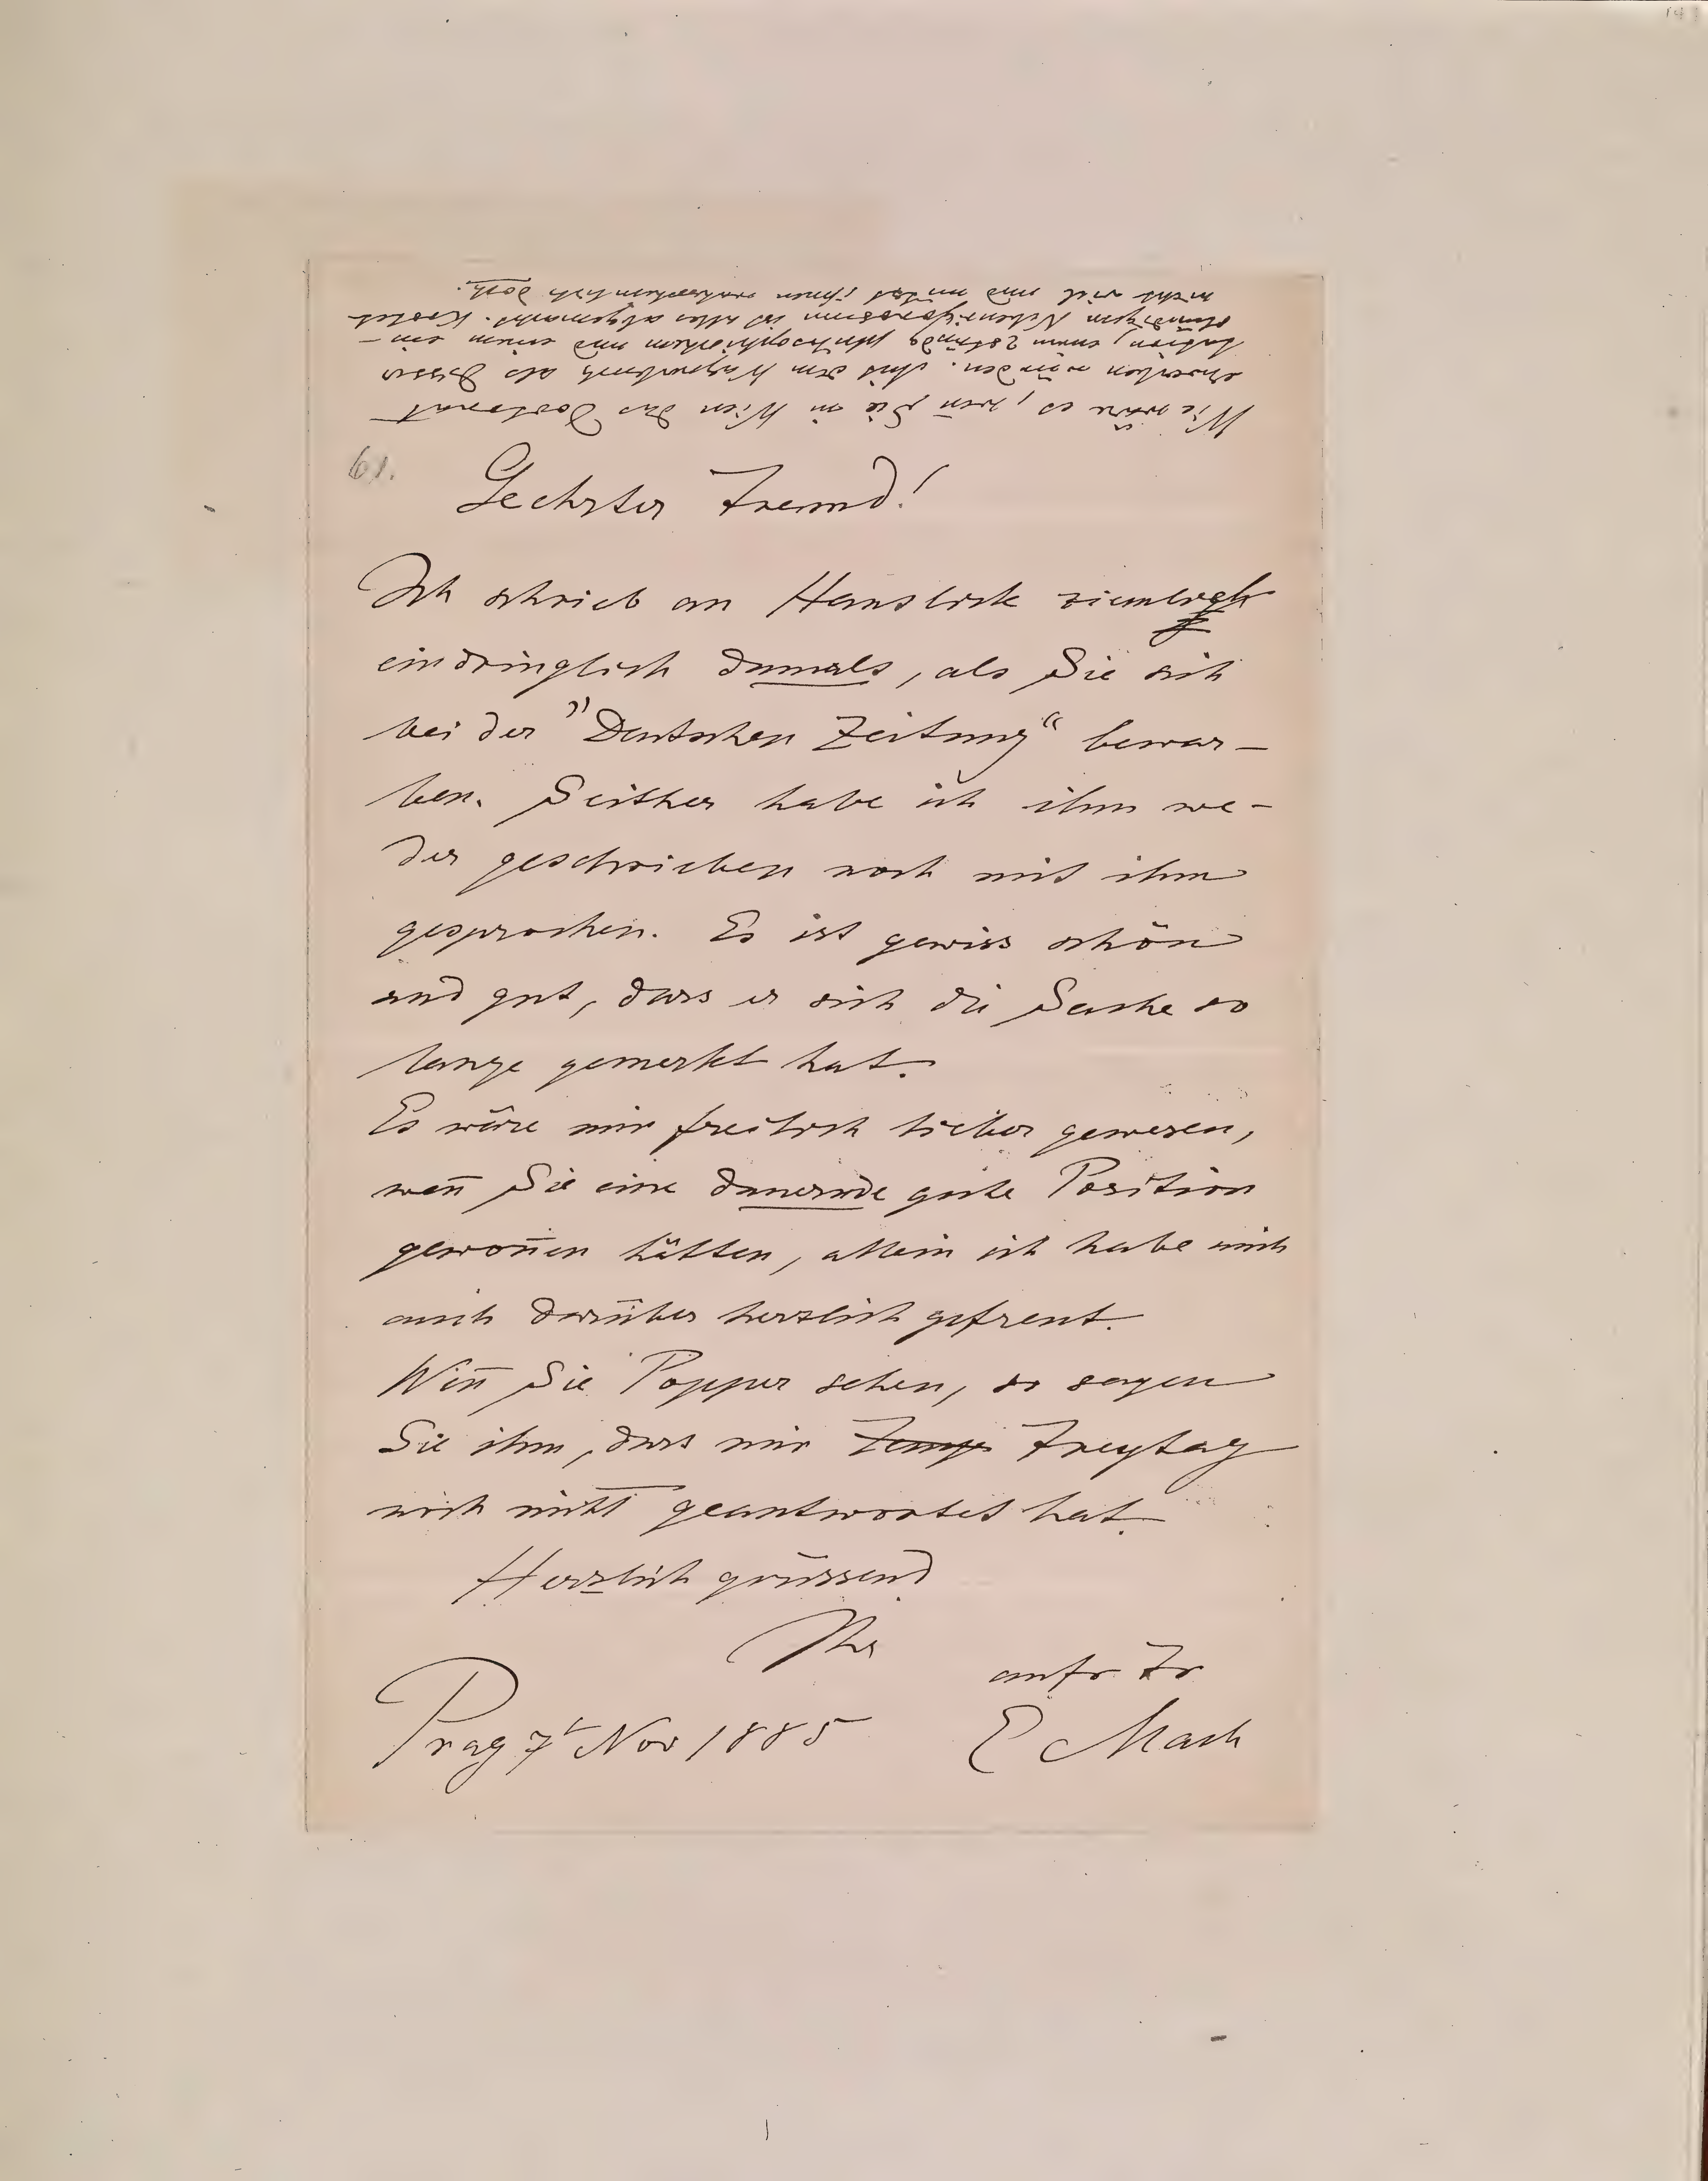 61.
Geehrter Freund!
Ich schrieb an Hanslick ziemlich
eindringlich damals, als Sie sich
bei der "Deutschen Zeitung" bewar-
ben. Seither habe ich ihm we-
der geschrieben noch mit ihm
gesprochen. Es ist gewiss schön
und gut, dass er sich die Sache so
lange gemerkt hat.
Es wäre mir freilich lieber gewesen,
wen̄ Sie eine dauernde gute Position
gewon̄en hätten, allein ich habe mich
auch darüber herzlich gefreut.
Wen̄ Sie Popper sehen, so sagen
Sie ihm, dass mir Freytag
noch nicht geantwortet hat.
Herzlich grüssend
Ihr
aufr Fr
Prag 7t Nov 1885
E Mach
Wie wäre es, wen̄ Sie in Wien das Doctorat
erwerben würden. Mit dem Wagnerbuch als Disser
tation, einem 2stündg philosophischem und einem ein-
stündigem Nebenrigorosum ist alles abgemacht. Kostet
nicht viel und nützt Ihnen wahrscheinlich doch.